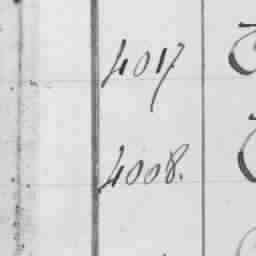 4017
4008.